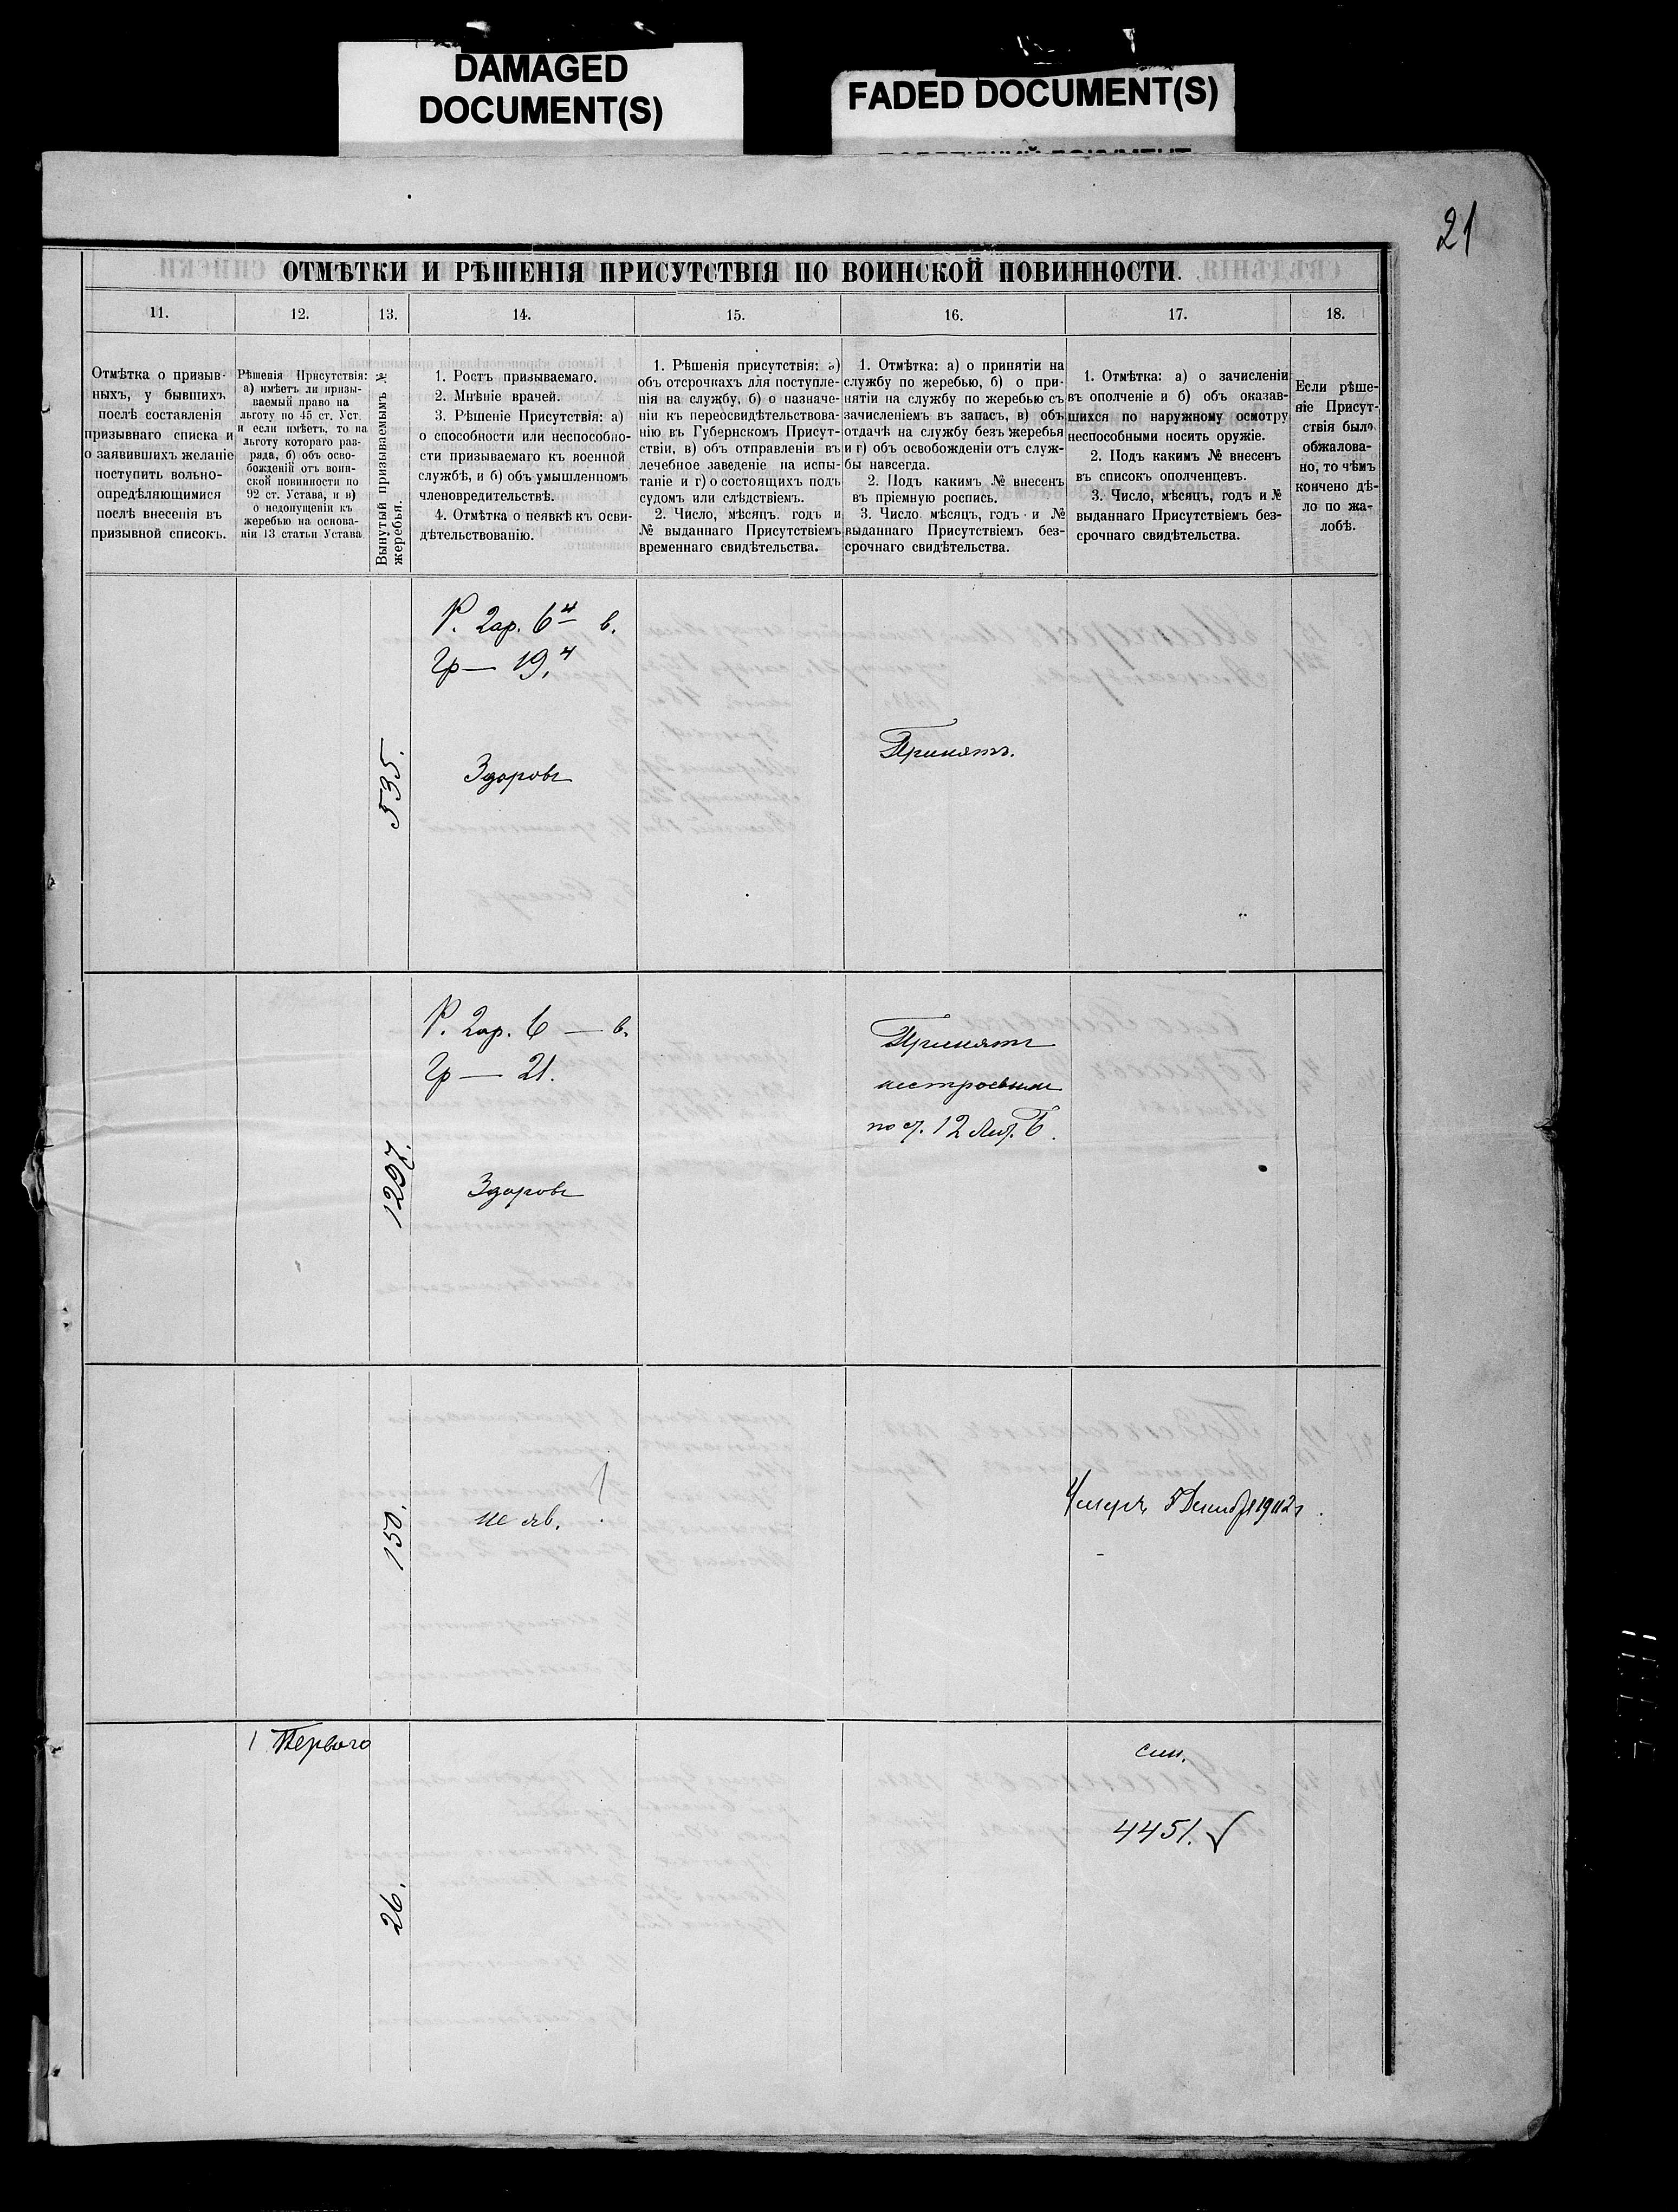 DAMAGED
DOCUMENT(S)
FADED DOCUMENT(S)
21
ОТМѢТКИ И РѢШЕНІЯ ПРИСУТСТВІЯ ПО ВОИНСКОЙ ПОВИННОСТИ.
11.
12.
13.
14.
15.
16.
17.
18.
Отмѣтка о призыв-
ныхъ, у бывшихъ
послѣ составленія
призывнаго списка и
о заявившихъ желаніе
поступить вольно-
опредѣляющимися
послѣ внесенія въ
призывной списокъ.
Рѣшенія Присутствія:
а) имѣетъ ли призы-
ваемый право на
льготу по 45 ст. Уст.
и если имѣетъ, то на
льготу котораго раз-
ряда, б) объ осво-
божденіи отъ воин-
ской повинности по
92 ст. Устава, и в)
о недопущеніи къ
жеребью на основа-
ніи 13 статьи Устава
Вынутый призываемымъ №
жеребья.
1. Ростъ призываемаго.
2. Мнѣніе врачей.
3. Рѣшеніе Присутствія: а)
о способности или неспособно-
сти призываемаго къ военной
службѣ, и б) объ умышленномъ
членовредительствѣ.
4. Отмѣтка о неявкѣ къ осви-
дѣтельствованію.
1. Рѣшенія присутствія: а)
объ отсрочкахъ для поступле-
нія на службу, б) о назначе-
ніи къ переосвидѣтельствова-
нію въ Губернскомъ Присут-
ствіи, в) объ отправленіи въ
лечебное заведеніе на испы-
таніе и г) о состоящихъ подъ
судомъ или слѣдствіемъ.
2. Число, мѣсяцъ. годъ и
№ выданнаго Присутствіемъ
временнаго свидѣтельства.
1. Отмѣтка: а) о принятіи на
службу по жеребью, б) о при-
нятіи на службу по жеребью съ
зачисленіемъ въ запасъ, в) объ
отдачѣ на службу безъ жеребья
и г) объ освобожденіи отъ служ-
бы навсегда.
2. Подъ какимъ № внесенъ
въ пріемную роспись.
3. Число мѣсяцъ, годъ и №
выданнаго Присутствіемъ без-
срочнаго свидѣтельства.
1. Отмѣтка: а) о зачисленіи
въ ополченіе и б) объ оказав-
шихся по наружному осмотру
неспособными носить оружіе.
2. Подъ какимъ № внесенъ
въ списокъ ополченцевъ.
3. Число, мѣсяцъ, годъ и №
выданнаго Присутствіемъ без-
срочнаго свидѣтельства.
Если рѣше-
ніе Присут-
ствія было
обжалова-
но, то чѣмъ
кончено дѣ-
ло по жа-
лобѣ.
Р. 2 ар. 6 4 в.
Гр — 19,4
535.
Здоровъ
Принятъ.
Р. 2 ар. 6 — в.
Гр — 21.
1297.
Здоровъ
Принятъ
нестроевымъ
по ст. 12 лит. Б.
150.
не яв.
Умеръ 5 Декабря 1902 г.
1 Перваго
26.
4451.